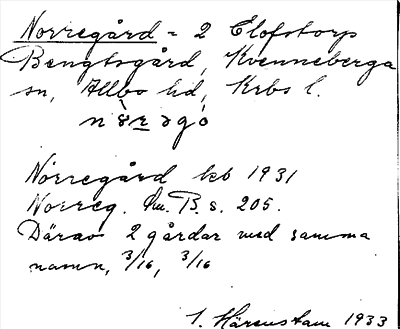 Norregård = 2 Elofstorp
Bengtsgård, Kvenneberga
sn, Allbo hd, Krbs l.
Norregård kb 1931
Norreg. Hm. B. s. 205.
Därav 2 gårdar med samma
namn, 3/16, 3/16
1933